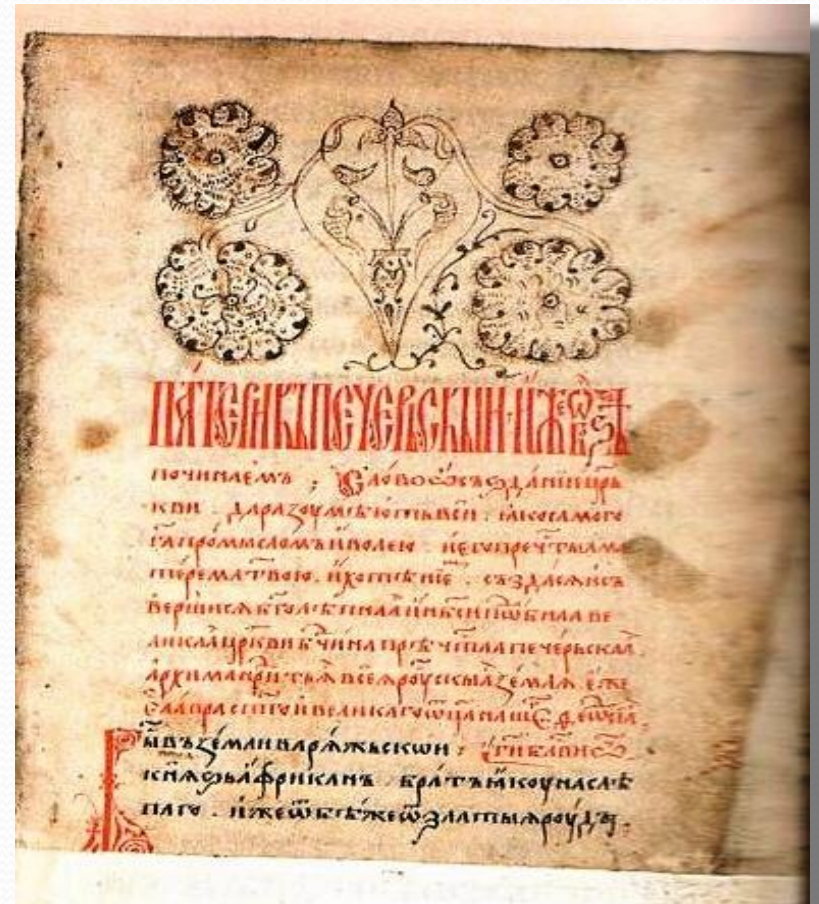 ПАТЕРИКЪ ПЕЧЕРСКЫИ · ИЖЕ Ѿ
починаемъ ; Слово ѡ създанїи цр҃ь
кви . да разоумѣють вси . ꙗко самого
г҃а промысломъ и волею . и его преч҃тыа м҃
твою . и хотѣнїе . създася и съ
вершися бг҃олѣпнаа и нб҃си пѡбнаа ве
ликаа цр҃кви бч҃ина прѣч҃тыа печерьскаа
всеа роускыа земля еже
лавра ст҃го и великаго ѿц҃а наше҃г
бы҃ въ земли варяжьскои : бл҃ви ѿ
князь африканъ братъ ꙗкоуна слѣ
паго . иже ѿбѣже ѿ златыа роуды .